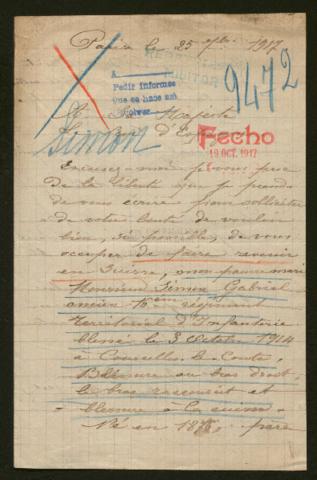 Paris le 25 7bre 1917
A
Pedir informes
que se hace
9472
A Sa Majesté
d'Espagne
Simon
Fecho
19 OCT. 1917
Excusez-moi je vous prie
de la liberté que je prends
de vous écrire pour solliciter
de votre bonté de vouloir
bien, si possible, de vous
occuper de faire revenir
en Suisse, mon pauvre mari
Monsieur Simon Gabriel
ancien 10eme régiment
Territorial d'Infanterie
blessé le 3 Octobre 1914
à Courcelles-le-Comte,
Blessure au bras droit,
le bras raccourci et
blessure à la cuisse.
Né en 187